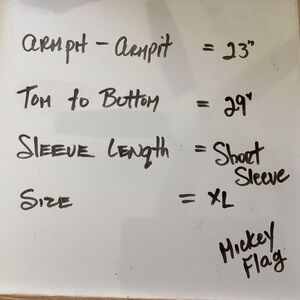 ARMPIT - ARMPIT = 23"
TOM to BUTTOM = 29"
SLEEVE LENGTH = Short Sleeve
SIZE = XL
Mickey
Flag